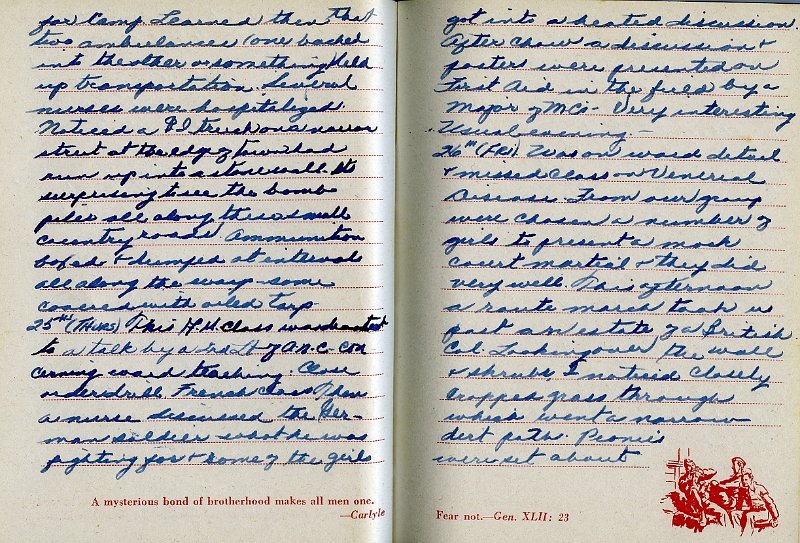 for Camp. Learned then that
two ambulances (one backed
into the other or something) Held
up transportation. Several
nurses were hospitalized.
Noticed a G I truck on a narrow
street at the edge of town had
run up into a stone wall. It
surprising to see the bomb
piles all along these small
country roads. Ammunition
& dumped at interval
all along the way - some
covered with oiled tarp
25th (Thurs) This A.M. Class was
to a talk by a 2nd Lt of A.N.C. con
cerning ward teaching. Close
order drill. French Class. Then
a nurse discussed the Ger-
man soldier - what he was
fighting for & some of the girls
A mysterious bond of brotherhood makes all men one.
—Carlyle
got into a heated discussion.
After chow a discussion &
posters were presented on
First Aid in the field by a
Major of MCs - Very interesting
Usual evening. -
26th (Fri) Was on ward detail
& missed class on Venerial
Disease. From our group
were chosen a number of
girls to present a mock
court martial & they did
very well. This afternoon
a route march took us
past an estate of a British
Col. Looking over the wall
& shrubs, I noticed closely
cropped grass through
which went a narrow
dirt path. Peonies
were set about
Fear not.—Gen. XLII: 23